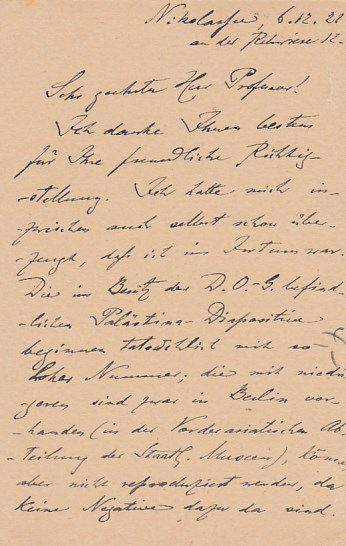 Nikolassee, 6.12.28
an der Rehwiese 12.
Sehr geehrter Herr Professor!
Ich danke Ihnen bestens
für Ihre freundliche Richtig-
-stellung. Ich hatte mich in-
-zwischen auch selbst schon über-
-zeugt, daß ich im Irrtum war.
Die im Besitz der D.O.-G. befind-
lichen Palästina-Diapositive
beginnen tatsächlich mit so
hoher Nummer; die mit niedri-
geren sind zwar in Berlin vor-
handen (in der Vorderasiatischen Ab-
-teilung der Staatl. Museen), können
aber nicht reproduziert werden, da
keine Negative dafür da sind.